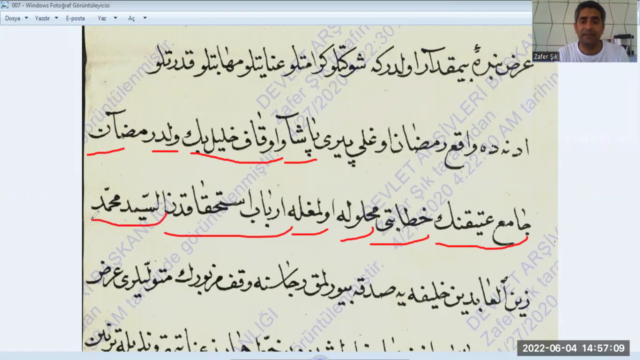 007 - Windows Fotoğraf Görüntüleyicisi
Dosya Yazdır E-posta Yaz Aç
Zafer Şık
عرض بندۀ بیمقدار اولدركه شوكتلو كرامتلو عنایتلو مهابتلو قدرتلو
ادنه ده واقع رمضان اوغلی پیری پاشا و اوقاف خلیل بك ولد رمضان
جامع عتیقنك خطابتی محلوله اولمغله ارباب استحقاقدن السید محمد
زین العابدین خلیفه یه صدقه بیورلمق رجاسنه وقف مزبورك متولیلری عرض
DEVLET ARŞİVLERİ
Zafer Şık tarafından
4/27/2020 4:22:30 AM tarihinde görüntülenmiştir.
2022-06-04 14:57:09